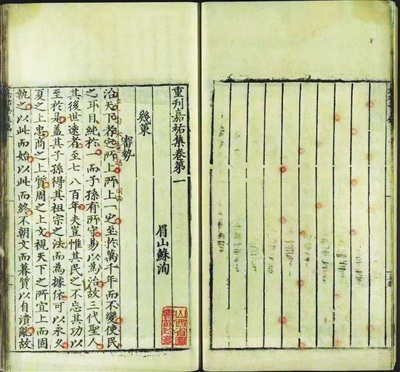 重刊嘉祐集卷第一
眉山蘇洵
幾策
審勢
治天下者定所上所上一定至於萬千年而不變使民
之耳目純於一而子孫有所守易以為治故三代聖人
其後世遠者至七八百年夫豈惟其民之不忘其功以
至於是蓋其子孫得其祖宗之法而為據依可以永久
夏之上忠商之上質周之上文視天下之所宜上而固
執之以此而始以此而終不朝文而暮質以自潰亂故